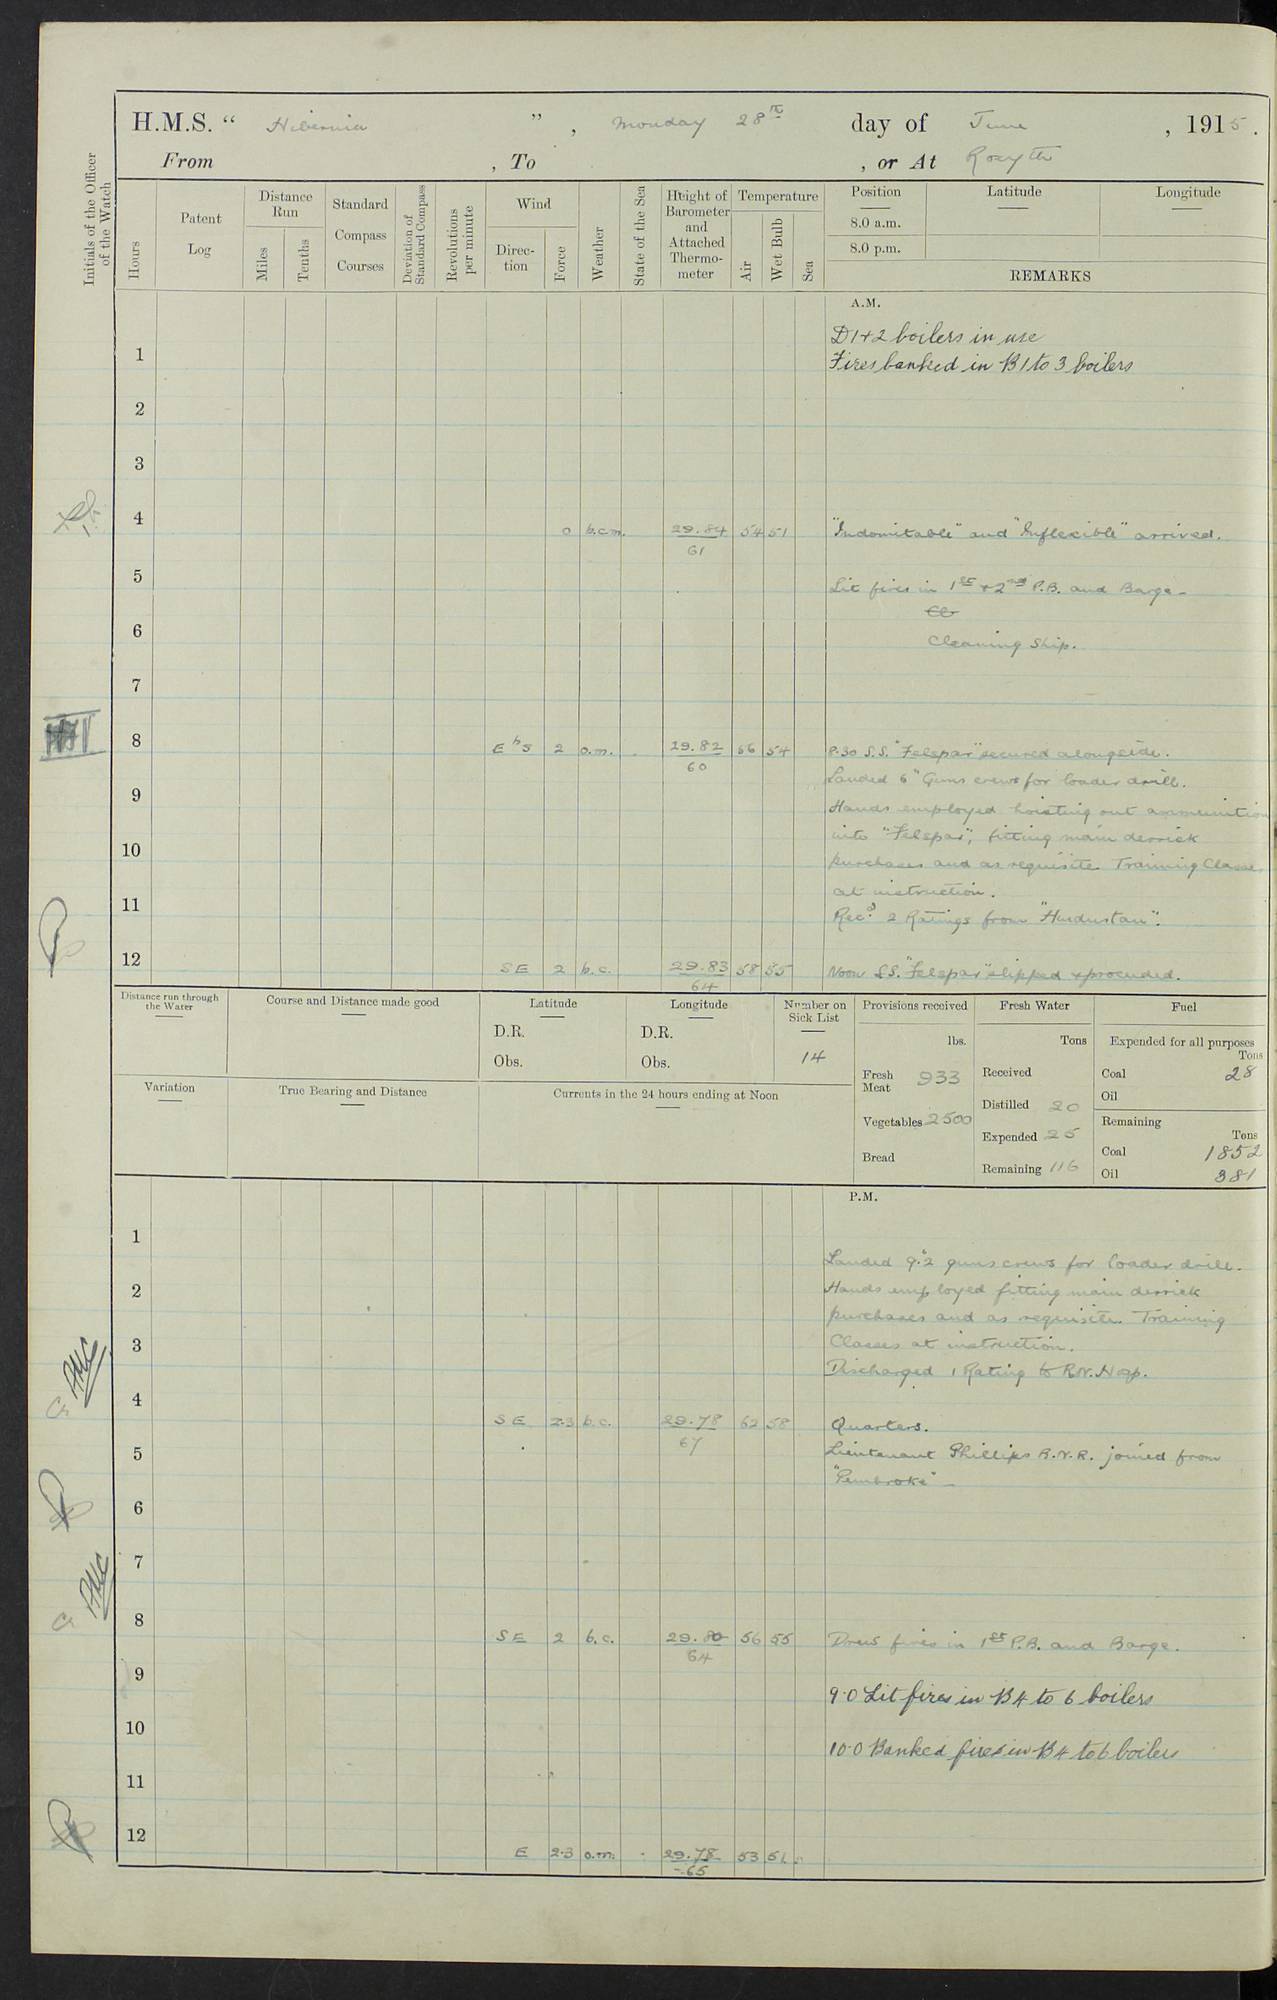 H.M.S. “ Hibernia ” , Monday 28th day of June , 1915 .
From , To , or At Rosyth
Initials of the Officer of the Watch
Hours
Patent Log
Distance Run
Miles
Tenths
Standard Compass Courses
Deviation of Standard Compass
Revolutions per minute
Wind
Direction
Force
Weather
State of the Sea
Height of Barometer and Attached Thermometer
Temperature
Air
Wet Bulb
Sea
Position Latitude Longitude
8.0 a.m.
8.0 p.m.
REMARKS
A.M.
D 1+2 boilers in use
1 Fires banked in B 1 to 3 boilers
2
3
4 0 b.c.m. 29.84 54 51 "Indomitable" and "Inflexible" arrived.
61
5 Lit fires in 1st + 2nd P.B. and Barge
Cl
6 Cleaning Ship.
7
8 E b S 2 o.m. 29.82 56 54 8.30 S.S. "Felspar" secured alongside.
60
Landed 6" Guns crews for loader drill.
9 Hands employed hoisting out ammunition
into "Felspar", fitting main derrick
10 purchases and as requisite. Training Classes
at instruction.
11 Recd. 2 Ratings from "Hindustan".
12 SE 2 b.c. 29.83 58 55 Noon S.S. "Felspar" slipped + proceeded.
64
Distance run through the Water
Course and Distance made good
Latitude
D.R.
Obs.
Longitude
D.R.
Obs.
Number on Sick List
14
Variation
True Bearing and Distance
Currents in the 24 hours ending at Noon
Provisions received
lbs.
Fresh Meat 933
Vegetables 2500
Bread
Fresh Water
Tons
Received
Distilled 20
Expended 25
Remaining 116
Fuel
Expended for all purposes
Tons
Coal 28
Oil
Remaining
Tons
Coal 1852
Oil 381
P.M.
1
Landed 9.2" guns crews for loader drill.
2 Hands employed fitting main derrick
purchases and as requisite. Training
3 Classes at instruction.
Discharged 1 Rating to R.N. Hosp.
4 SE 2.3 b.c. 29.78 62 58 Quarters.
67
5 Lieutenant Phillips R.N.R. joined from
"Pembroke"
6
7
8 SE 2 b.c. 29.80 56 55 Drew fires in 1st P.B. and Barge.
64
9 9.0 Lit fires in B 4 to 6 boilers
10 10.0 Banked fires in B 4 to 6 boilers
11
12 E 2.3 o.m. 29.78 53 51
65